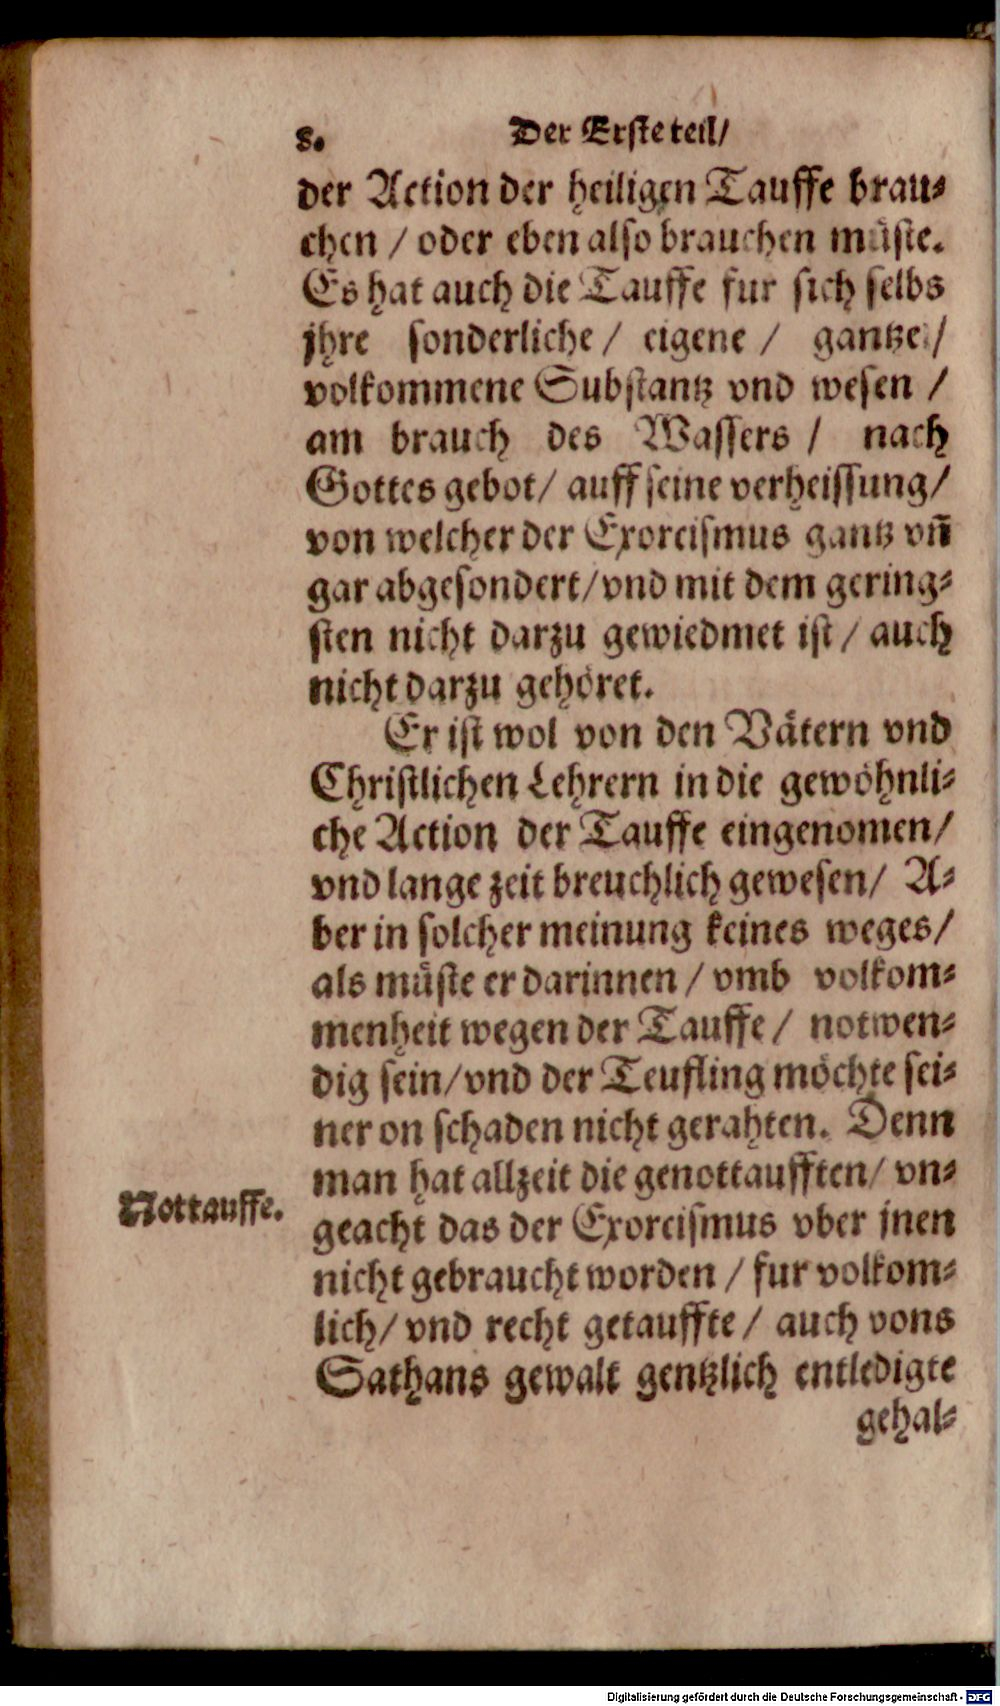 8. Der Erste teil/
der Action der heiligen Tauffe brau⸗
chen / oder eben also brauchen müste.
Es hat auch die Tauffe fur sich selbs
jhre sonderliche / eigene / gantze /
volkommene Substantz vnd wesen /
am brauch des Wassers / nach
Gottes gebot/ auff seine verheissung/
von welcher der Exorcismus gantz vñ
gar abgesondert/vnd mit dem gering⸗
sten nicht darzu gewiedmet ist / auch
nicht darzu gehöret.
Er ist wol von den Vätern vnd
Christlichen Lehrern in die gewöhnli⸗
che Action der Tauffe eingenomen/
vnd lange zeit breuchlich gewesen/ A⸗
ber in solcher meinung keines weges/
als müste er darinnen / vmb volkom⸗
menheit wegen der Tauffe / notwen⸗
dig sein/vnd der Teufling möchte sei⸗
ner on schaden nicht gerahten. Denn
man hat allzeit die genottaufften/ vn⸗
Nottauffe.
geacht das der Exorcismus vber jnen
nicht gebraucht worden / fur volkom⸗
lich/ vnd recht getauffte / auch vons
Sathans gewalt gentzlich entledigte
gehal⸗
Digitalisierung gefördert durch die Deutsche Forschungsgemeinschaft - DFG